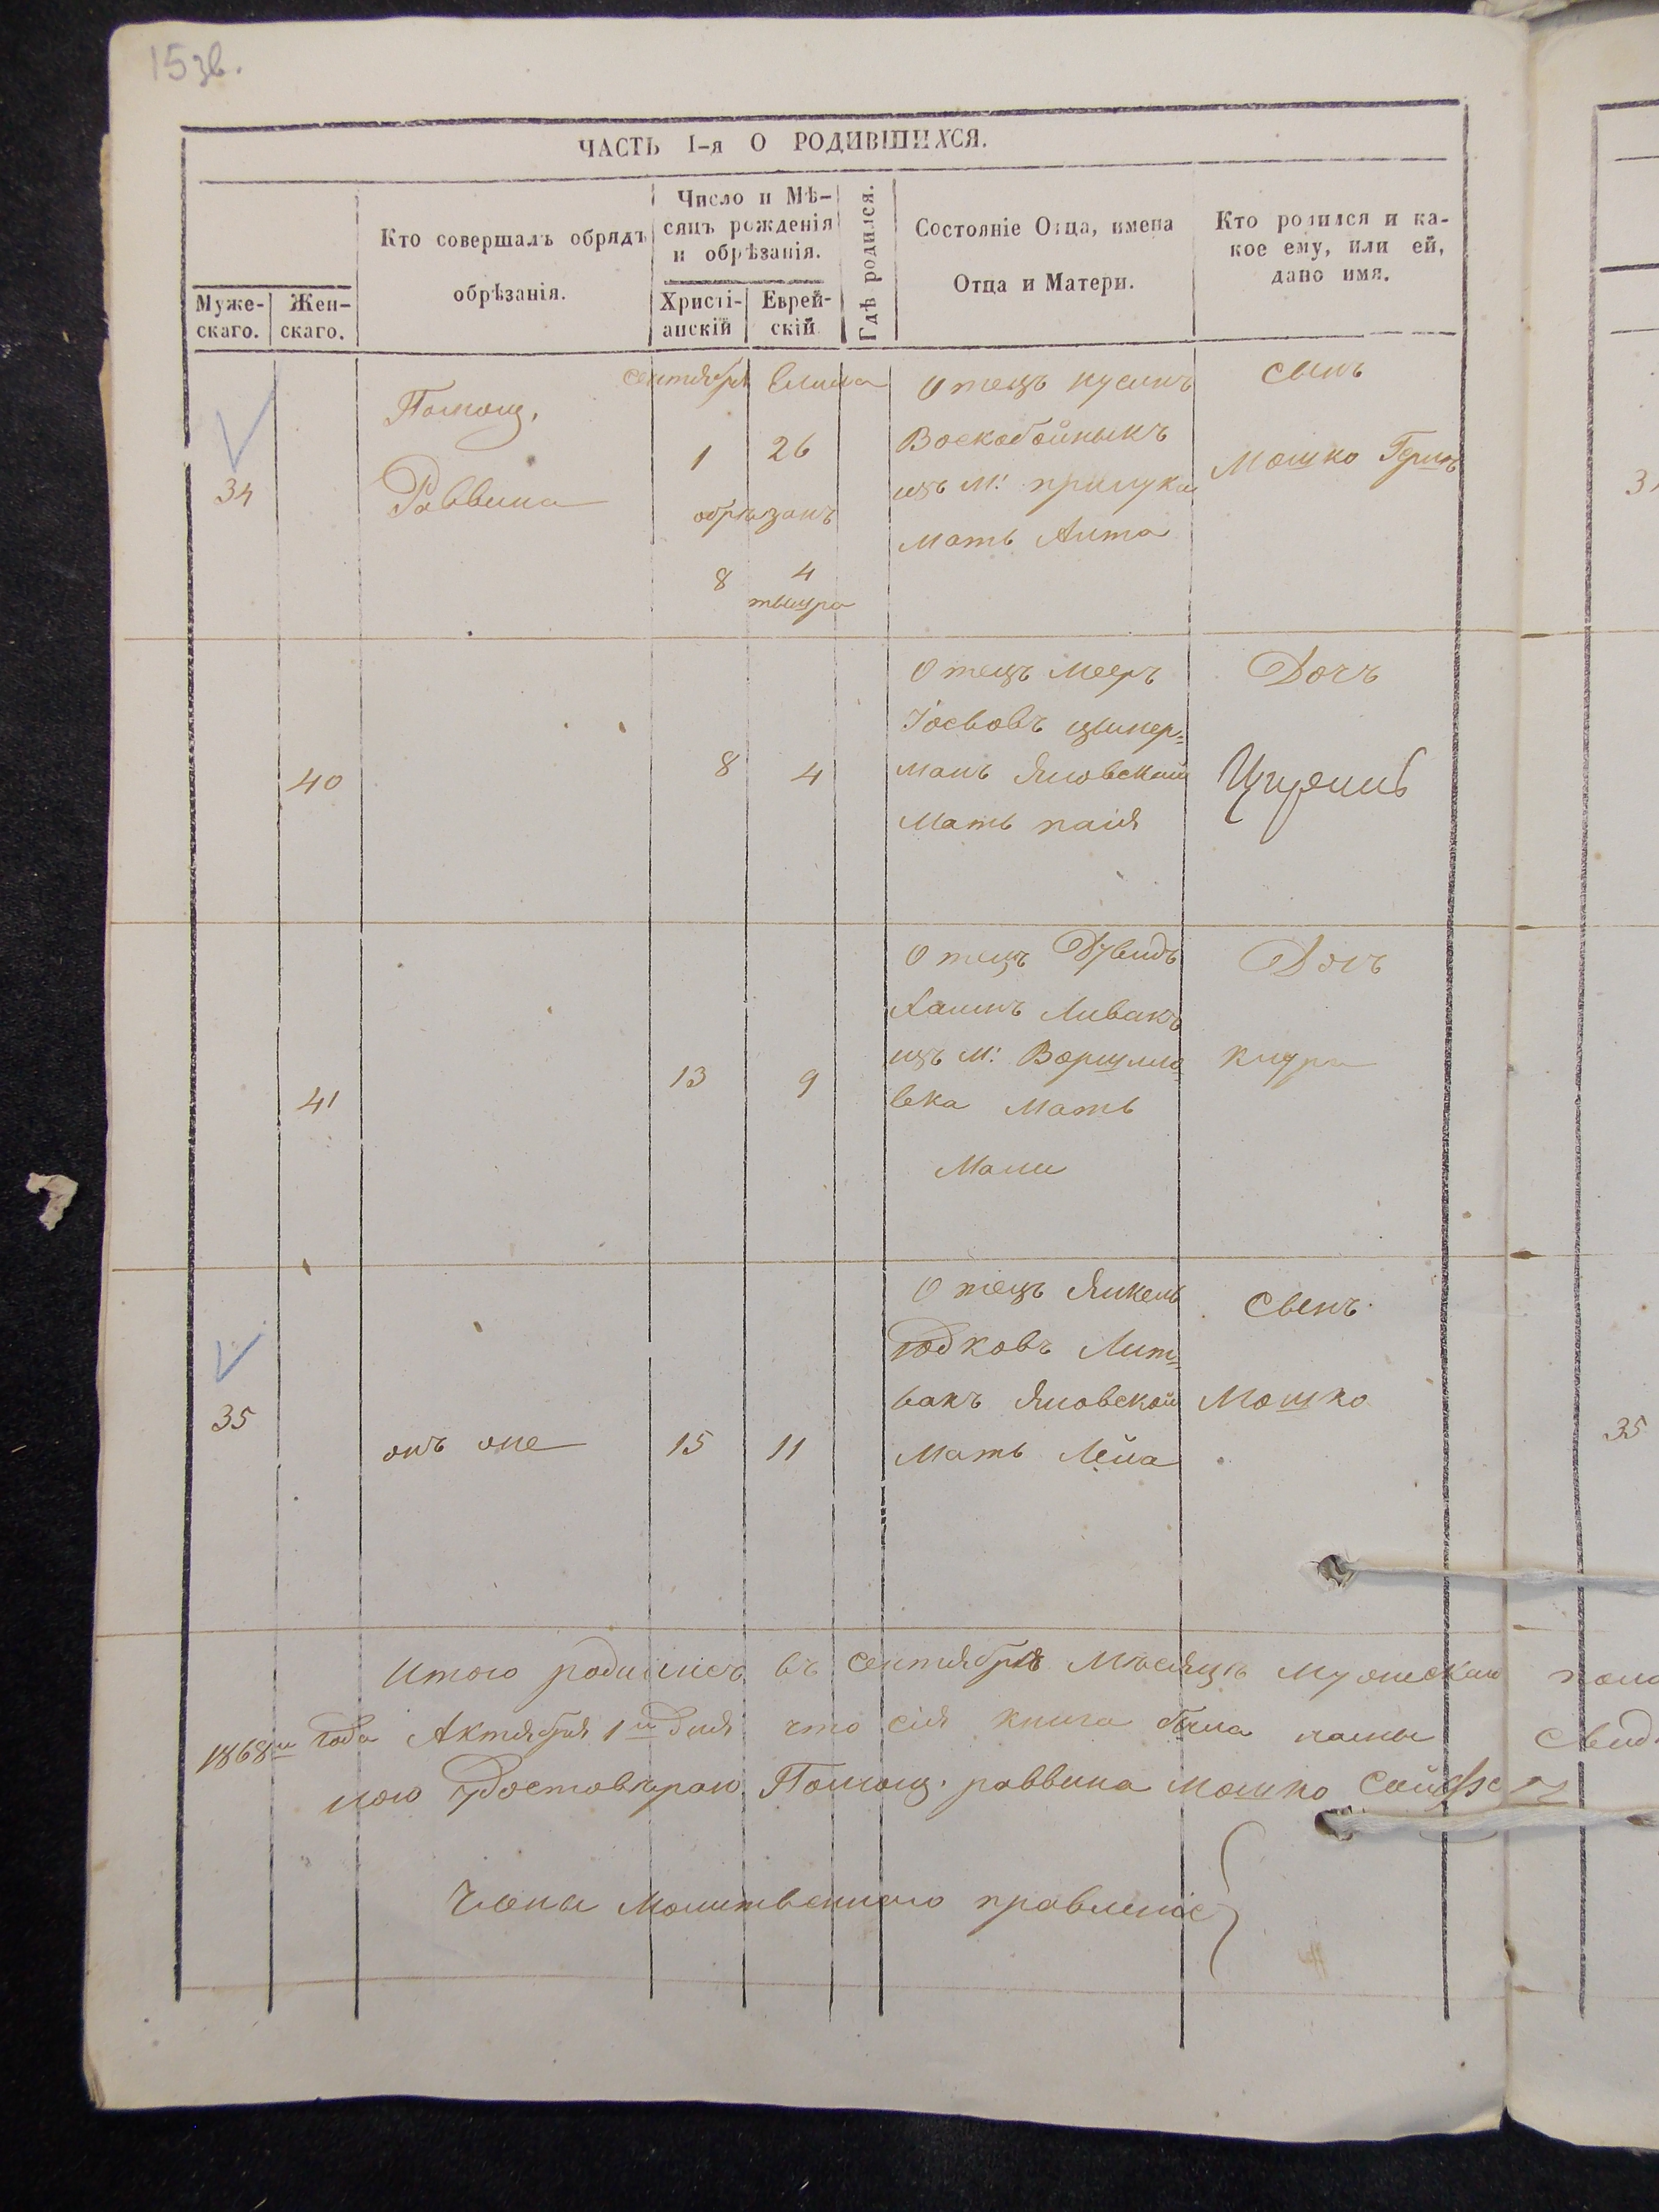 15зв.
ЧАСТЬ I-я О РОДИВШИХСЯ.
Муже-
скаго.
Жен-
скаго.
Кто совершалъ обрядъ
обрѣзанія.
Число и Мѣ-
сяцъ рожденія
и обрѣзанія.
Христі-
анскій
Еврей-
скій
Гдѣ родился.
Состояніе Отца, имена
Отца и Матери.
Кто родился и ка-
кое ему, или ей,
дано имя.
34
Помощ.
Раввина
сентября
1 26
обрѣзанъ
8 4
тышра
Отецъ нусинъ
Воскобойныкъ
изъ М: прилука
мать
сынъ
Мошко Гершъ
40
8 4
Отецъ Мееръ
Іосьовъ цымер=
манъ Яновскай
Мать
Дочъ
41
13 9
Отецъ Дувидъ
Хаимъ Ливакъ
изъ М:
века Мать
Дочъ
35
онъ оне
15 11
Отецъ Янкель
Юдковъ Лит=
вакъ Яновской
Мать Лейа
Свенъ
Мошко
35
Итого родилисъ въ Сентябрѣ Мѣсяцѣ Мужескаго
1868го года Актября 1го дня что сія книга была нами
мою Удостовѣраю Помощ. раввина Мошко
Члены Молитвенного правленіе